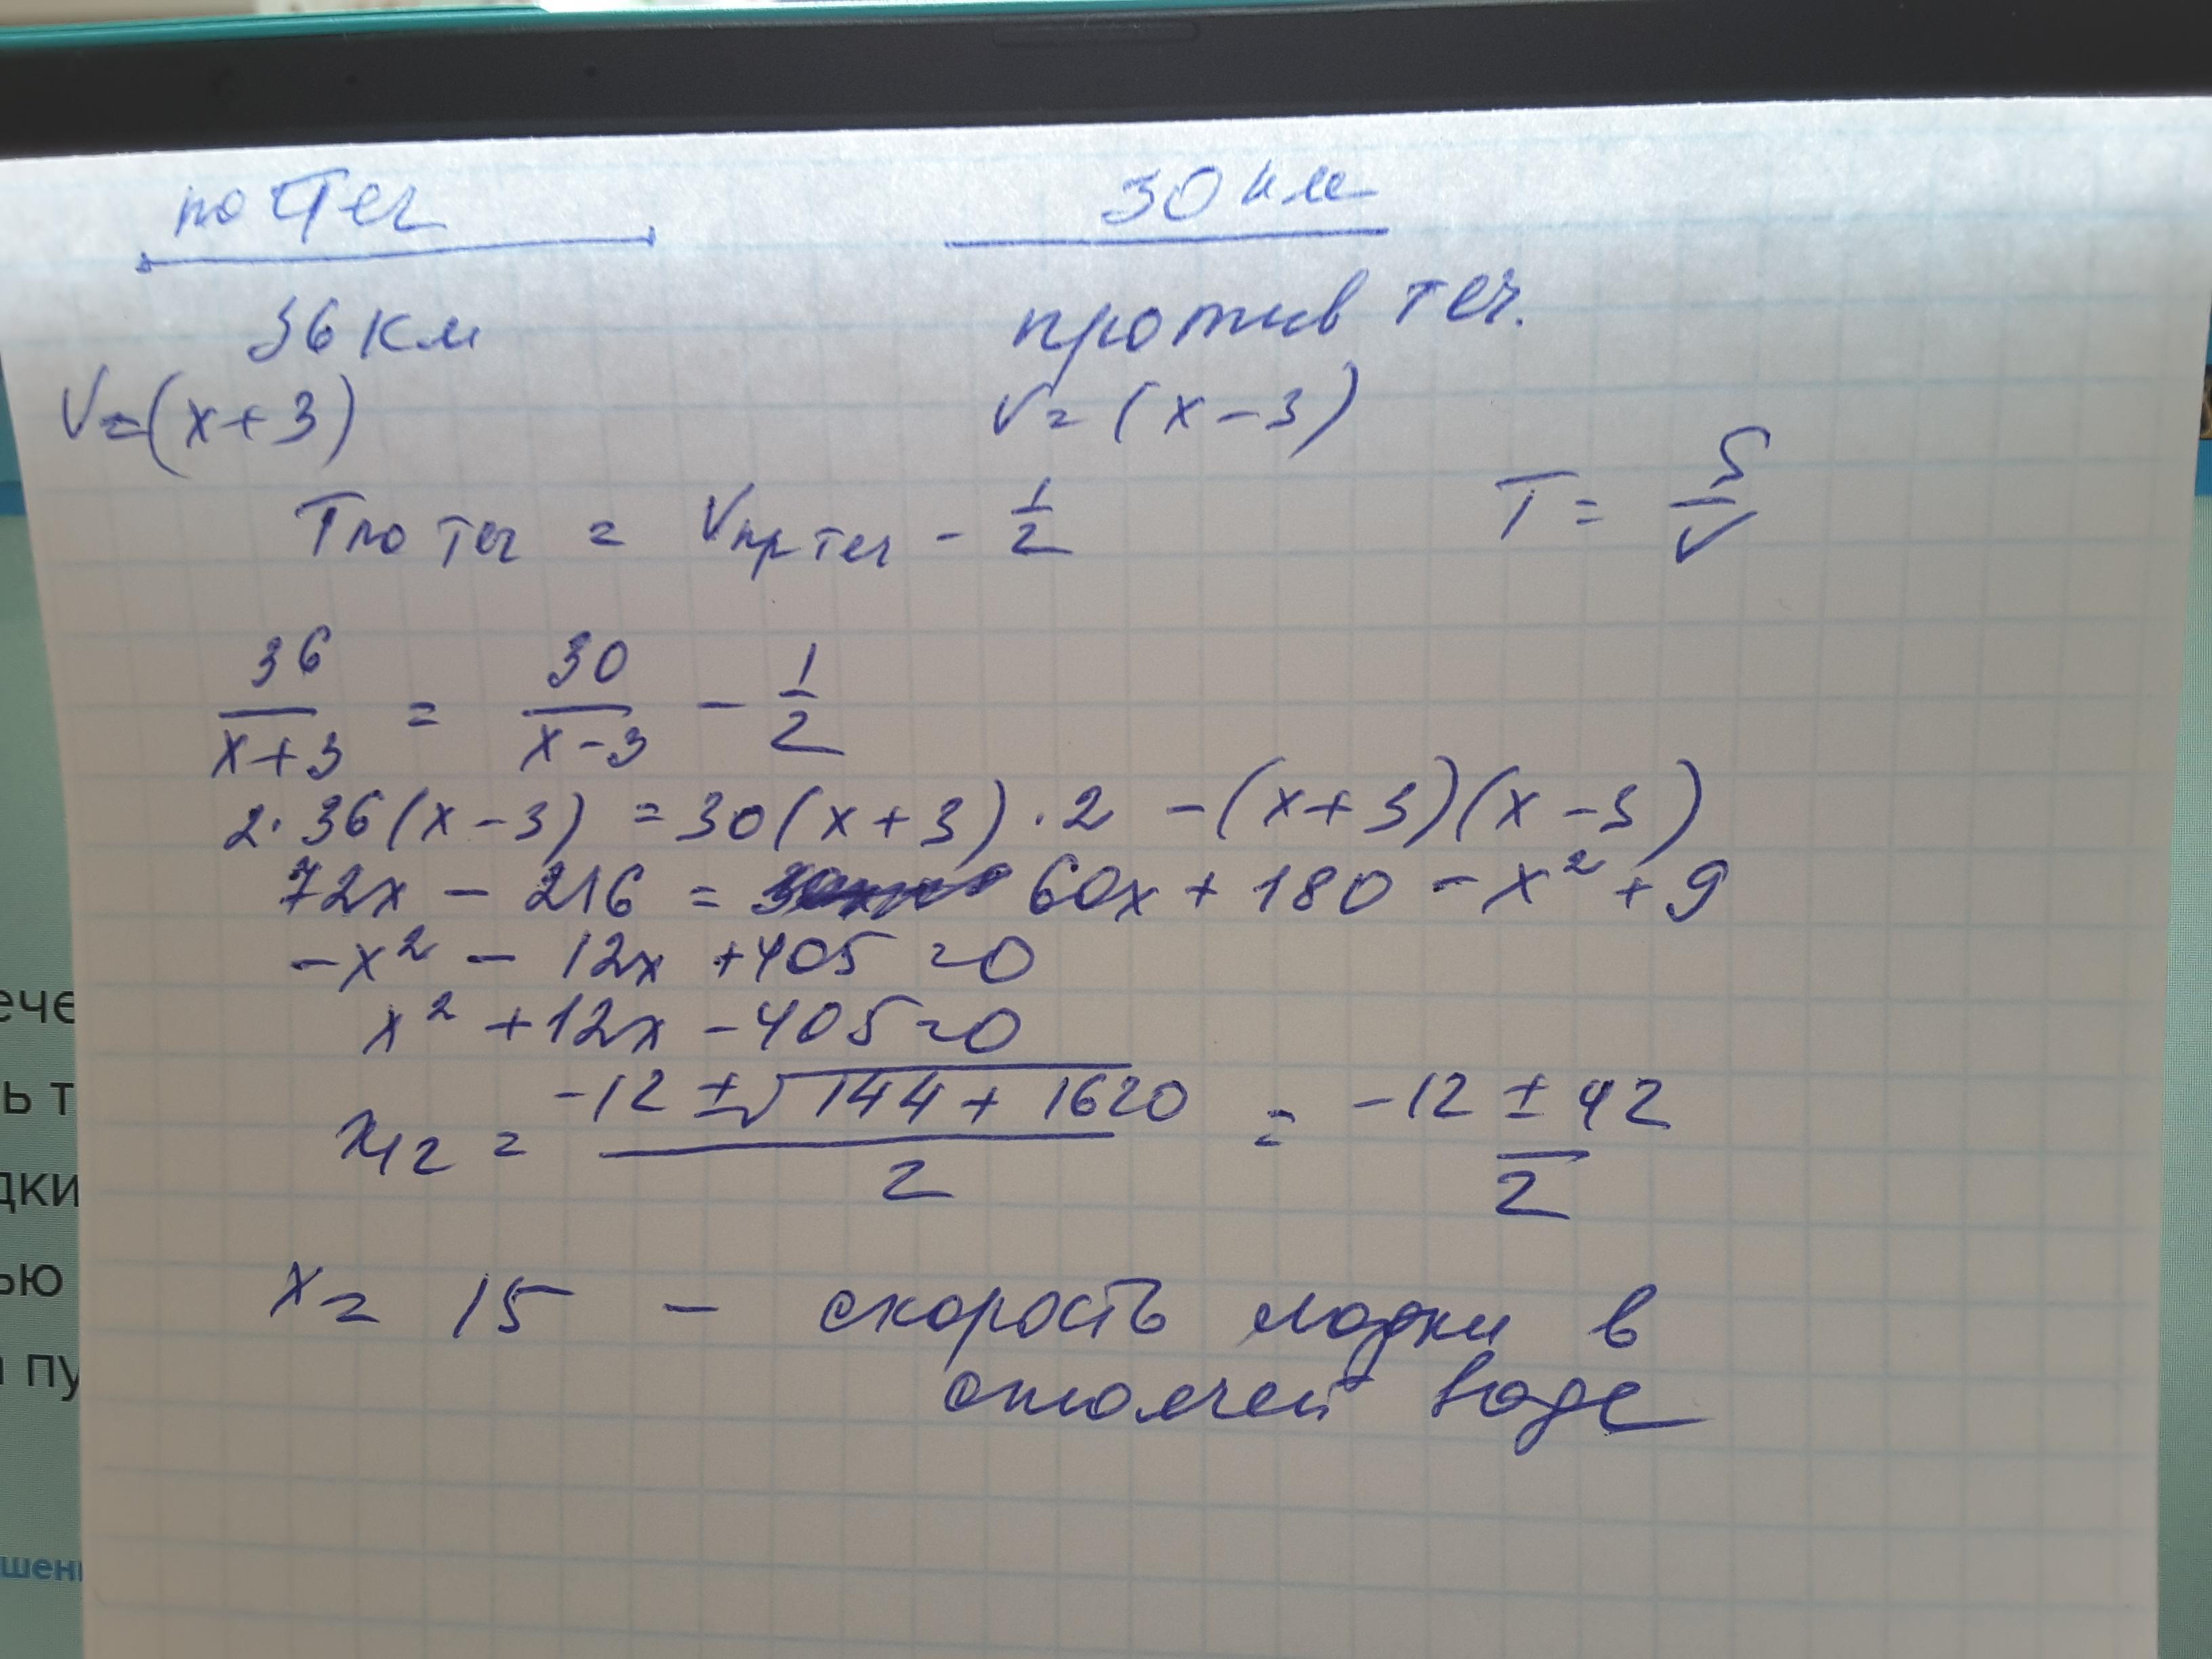 по теч 30 км
36 км против теч.
V=(x+3) V=(x-3)
T по теч = V пр теч - 1/2 T = S/V
36/(x+3) = 30/(x-3) - 1/2
2·36(x-3) = 30(x+3)·2 -(x+3)(x-3)
72x - 216 = 60x + 180 - x² + 9
-x² - 12x + 405 = 0
x² + 12x - 405 = 0
x₁₂ = (-12 ± √(144 + 1620))/2 = (-12 ± 42)/2
x = 15 - скорость лодки в
стоячей воде
ече
ь т
дки
ью
пу
шени